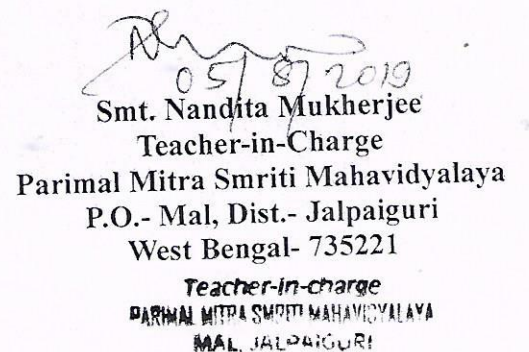 05/8/2019
Smt. Nandita Mukherjee
Teacher-in-Charge
Parimal Mitra Smriti Mahavidyalaya
P.O.- Mal, Dist.- Jalpaiguri
West Bengal- 735221
Teacher-in-charge
PARIMAL MITRA SMRITI MAHAVIDYALAYA
MAL, JALPAIGURI